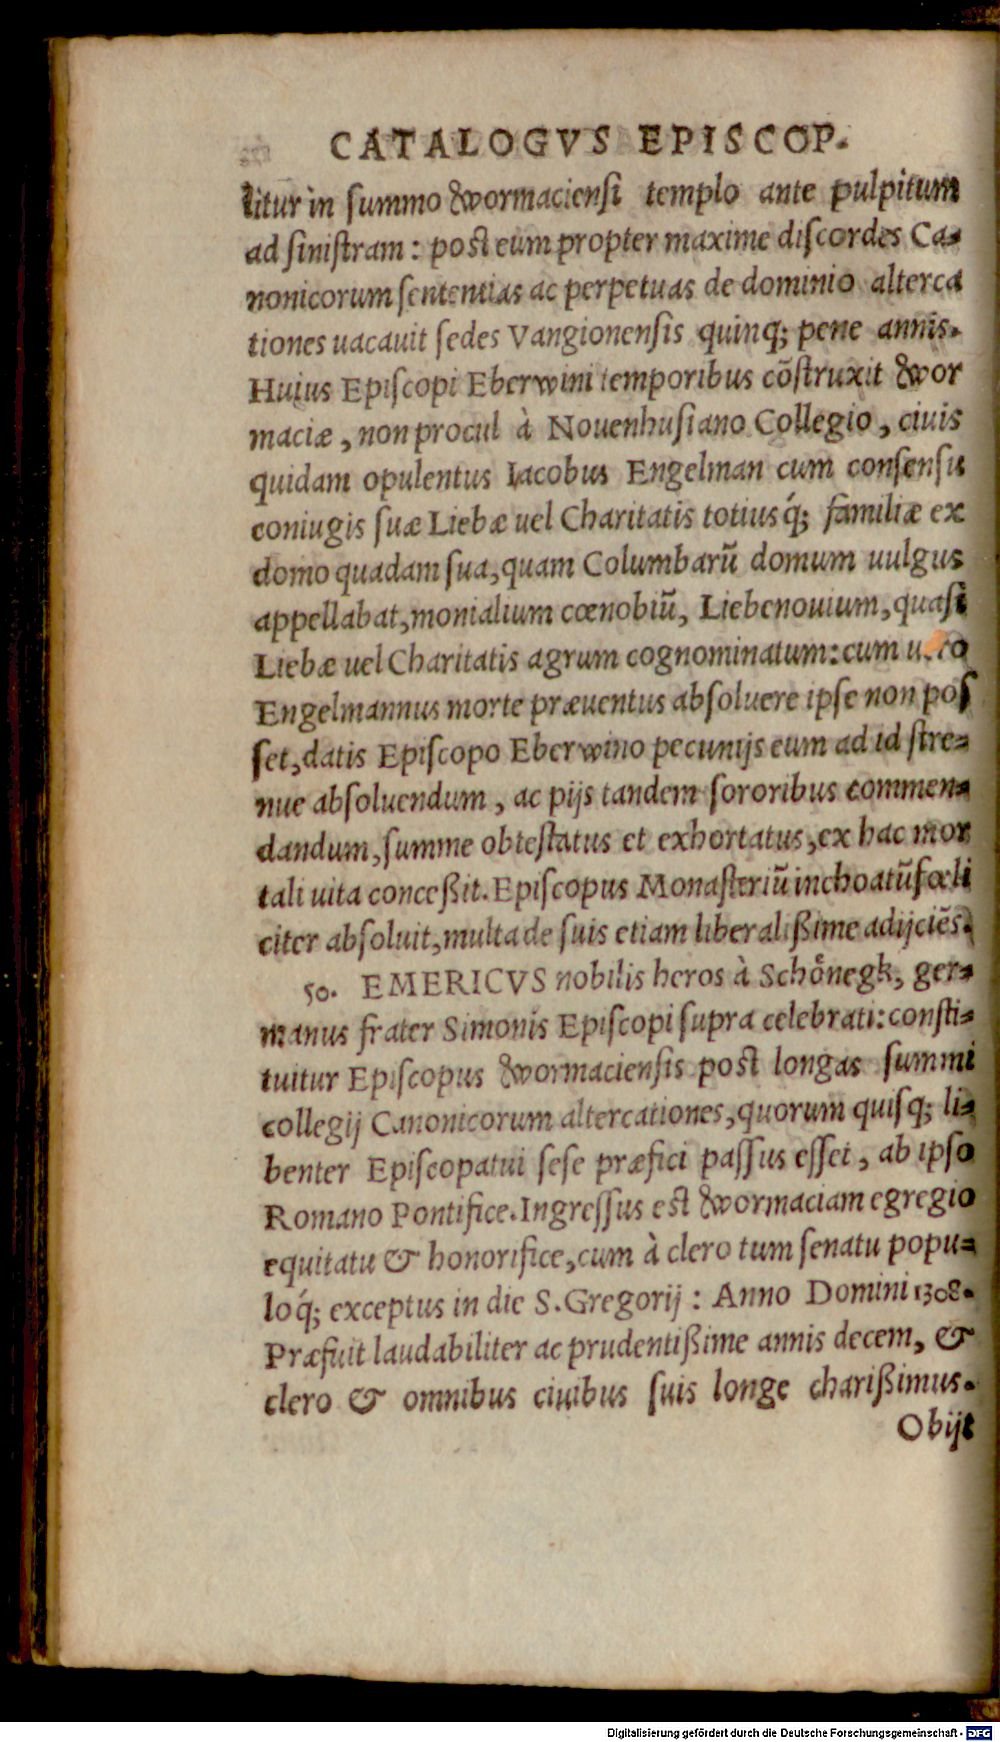 CATALOGVS EPISCOP.
litur in summo Wormaciensi templo ante pulpitum
ad sinistram: post eum propter maxime discordes Ca-
nonicorum sententias ac perpetuas de dominio alterca
tiones uacauit sedes Vangionensis quinq; pene annis.
Huius Episcopi Eberwini temporibus cõstruxit Wor
maciæ, non procul à Nouenhusiano Collegio, ciuis
quidam opulentus Iacobus Engelman cum consensu
coniugis suæ Liebæ uel Charitatis totiusq́; familiæ ex
domo quadam sua, quam Columbarũ domum uulgus
appellabat, monialium cœnobiũ, Liebenouium, quasi
Liebæ uel Charitatis agrum cognominatum: cum uero
Engelmannus morte præuentus absoluere ipse non pos
set, datis Episcopo Eberwino pecunijs eum ad id stre-
nue absoluendum, ac pijs tandem sororibus commen-
dandum, summe obtestatus et exhortatus, ex hac mor
tali uita conceßit. Episcopus Monasteriũ inchoatũ fœli
citer absoluit, multa de suis etiam liberalißime adijciẽs.
50. EMERICVS nobilis heros à Schônegk, ger-
manus frater Simonis Episcopi supra celebrati: consti-
tuitur Episcopus Wormaciensis post longas summi
collegij Canonicorum altercationes, quorum quisq; li-
benter Episcopatui sese præfici passus esset, ab ipso
Romano Pontifice. Ingressus est Wormaciam egregio
equitatu & honorifice, cum à clero tum senatu popu-
loq́; exceptus in die S. Gregorij: Anno Domini 1308.
Præfuit laudabiliter ac prudentißime annis decem, &
clero & omnibus ciuibus suis longe charißimus.
Obijt
Digitalisierung gefördert durch die Deutsche Forschungsgemeinschaft - DFG